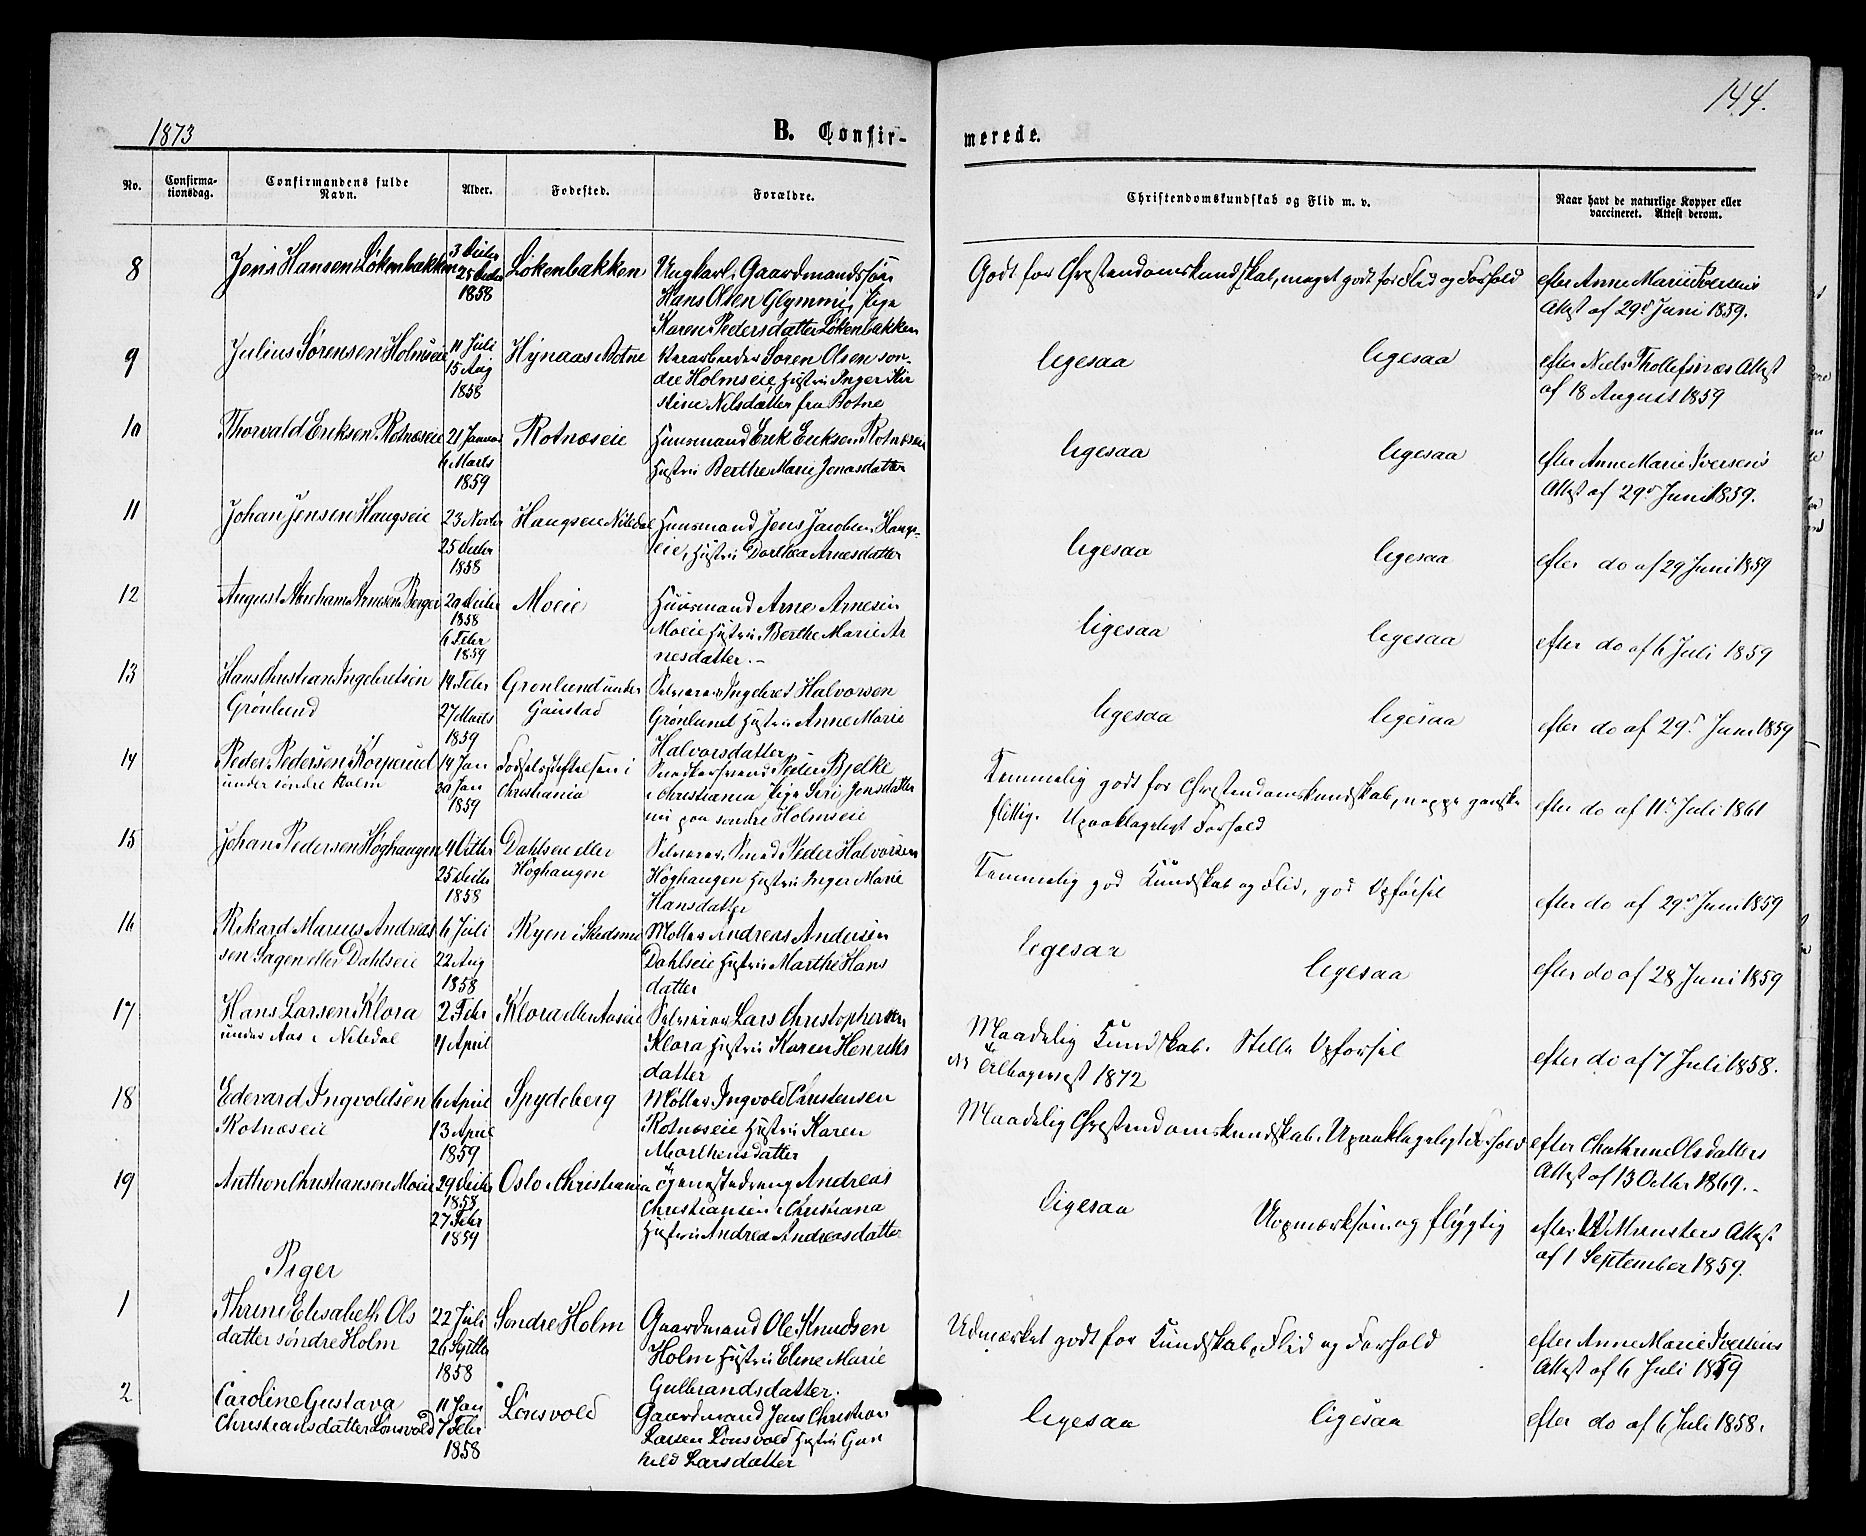 144.
1873
B. Confir-
merede.
No.
Confirma-
tionsdag.
Confirmandens fulde
Navn.
Alder.
Fødested.
Forældre.
Christendomskundskab og Flid m. v.
Naar havt de naturlige Kopper eller
vaccineret. Attest derom.
8
Jens Hansen Løkenbakken
3 Decbr
25 Decbr
1858
Løkenbakken
Ungkarl, Gaardmandssøn
Hans Olsen Glømmi, Pige
Karen Pedersdatter Løkenbakken
Godt for Christendomskundskab, meget godt for Flid og Forhold
efter Anne Marie Iversens
Attest af 29d Juni 1859.
9
Julius Sørensen Holmseie
11 Juli
15 Aug
1858
Hynaas Botne
Søren Olsen søn-
dre Holmseie, Hustru Inger Kir
stine Nilsdatter fra Botne
ligesaa
ligesaa
efter Niels Thollefsnæs Attest
af 18 August 1859
10
Thorvald Eriksen Rotnæseie
21 Januar
6 Marts
1859
Rotnæseie
Huusmand Erik Eriksen Rotnæseie
Hustru Berthe Marie Jonasdatter
ligesaa
ligesaa
efter Anne Marie Iversens
Attest af 29d Juni 1859.
11
Johan Jensen Haugseie
23 Novbr
25 Decbr
1858
Haugseie Nitedal
Huusmand Jens Jacobsen Haugs-
eie, Hustru Dorthea Arnesdatter
ligesaa
ligesaa
efter do af 29 Juni 1859
12
August Abraham Arnesen Berger
20 Decbr
1858
6 Febr
1859
Moeie
Huusmand Arne Arnesen
Moeie Hustru Berthe Marie Ar
nesdatter.-
ligesaa
ligesaa
efter do af 6 Juli 1859
13
Hans Christian Ingebretsen
Grønlund
14 Febr
27 Marts
1859
Grønlund under
Gaustad
Selveier Ingebret Halvorsen
Grønlund Hustru Anne Marie
Halvorsdatter
ligesaa
ligesaa
efter do af 29d Juni 1859
14
Peder Pedersen Korperud
under søndre Holm
14 Jan
30 Jan
1859
Fødselsstiftelsen i
Christiania
Snedkersvend Peder Bjelke
i Christiania Pige Siri Jensdatter
nu paa søndre Holmseie
Temmelig godt for Christendomskundskab, neppe ganske
flittig. Upaaklageligt Forhold
efter do af 11te Juli 1861
15
Johan Pedersen Høghaugen
4 Octbr
25 Decbr
1858
Dahlseie eller
Høghaugen
Selveier, Smed Peder Halvorsen
Høghaugen Hustru Inger Marie
Hansdatter
Temmelig god Kundskab og Flid, god Opførsel
efter do af 29d Juni 1859
16
Rikard Marius Andreas
sen Sagen eller Dahlseie
6 Juli
22 Aug
1858
Ryen i Skedsmo
Møller Andreas Andersen
Dahlseie Hustru Marthe Hans
datter
ligesaa
ligesaa
efter do af 28 Juni 1859
17
Hans Larsen Klora
under Aas i Nitedal
2 Febr
4 April
Klora eller Aaseie
Selveier Lars Christophersen
Klora Hustru Karen Henriks
datter
Maadelig Kundskab. Stille Opførsel
er tilbagevist 1872
efter do af 7 Juli 1858.
18
Edevard Ingvoldsen
Rotnæseie
6 April
13 April
1859
Spydeberg
Møller Ingvold Christensen
Rotnæseie Hustru Karen
Marthensdatter
Maadelig Christendomskundskab. Upaaklageligt Forhold
efter Chathrine Olsdatters
Attest af 13 Octbr 1869.-
19
Anthon Christiansen Moeie
29 Decbr
1858
27 Febr
1859
Oslo i Christiania
Tjenestedreng Andreas
Christiansen i Christiana
Hustru Andrea Andreasdatter
ligesaa
Uopmærksom og flygtig
efter Munsters Attest
af 1 September 1859.
Piger
1
Thrine Elisabeth Ols
datter søndre Holm
22 Juli
26 Septbr
1858
Søndre Holm
Gaardmand Ole Knudsen
Holm Hustru Eline Marie
Gulbrandsdatter.
Udmærket godt for Kundskab, Flid og Forhold
efter Anne Marie Iversens
Attest af 6 Juli 1859
2
Caroline Gustava
Christiansdatter Lønsvold
11 Jan
7 Febr
1858
Lønsvold
Gaardmand Jens Christian
Larsen Lønsvold Hustru Gun
hild Larsdatter
ligesaa
ligesaa
efter do af 6 Juli 1858.